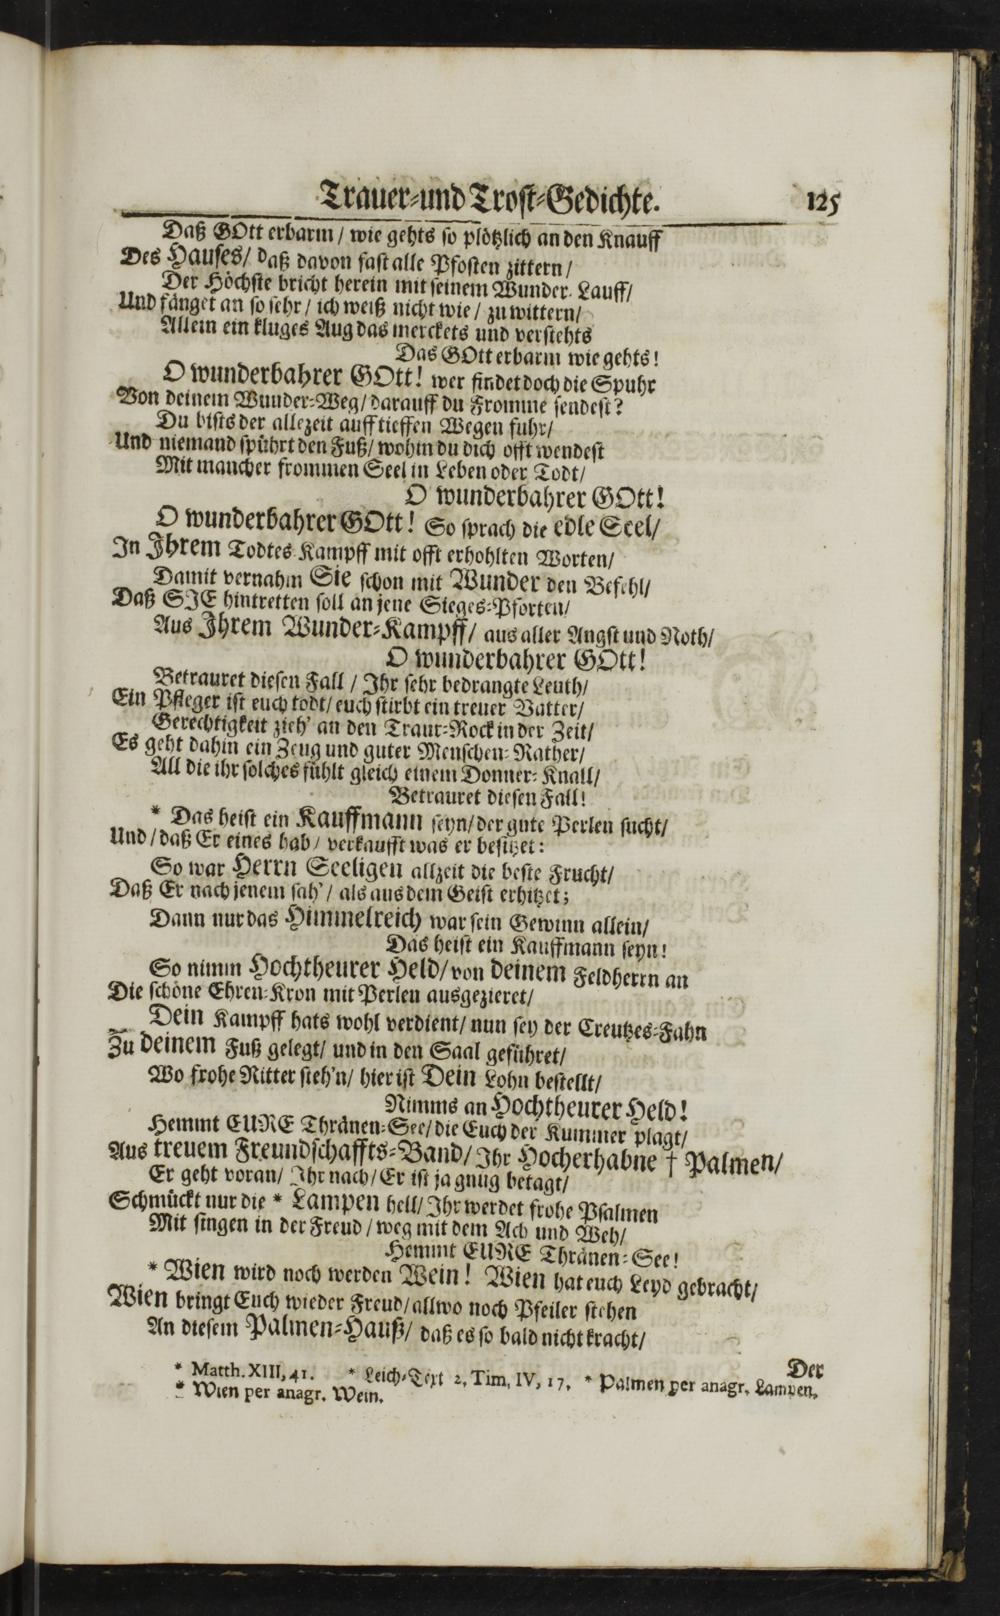 Trauer-und Trost-Gedichte. 125
Daß GOtt erbarm / wie gehts so plötzlich an den Knauff
Des Hauses/ daß davon fast alle Pfosten zittern /
Der Höchste bricht herein mit seinem Wunder-Lauff/
Und fänget an so sehr / ich weiß nicht wie / zu wittern/
Allein ein kluges Aug das merckets und verstehts
Das GOtt erbarm wie gehts!
O wunderbahrer GOtt! wer findet doch die Spuhr
Von deinem Wunder-Weg/ darauff du Fromme sendest?
Du bists der allezeit auff tieffen Wegen fuhr/
Und niemand spührt den Fuß/ wohin du dich offt wendest
Mit mancher frommen Seel in Leben oder Todt/
O wunderbahrer GOtt!
O wunderbahrer GOtt! So sprach die edle Seel/
In Ihrem Todtes-Kampff mit offt erhohlten Worten/
Damit vernahm Sie schon mit Wunder den Befehl/
Daß SIE hintretten soll an jene Sieges-Pforten/
Aus Ihrem Wunder-Kampff/ aus aller Angst und Noth/
O wunderbahrer GOtt!
Betrauret diesen Fall / Ihr sehr bedrangte Leuth/
Ein Pfleger ist euch todt/ euch stirbt ein treuer Vatter/
Gerechtigkeit zieh' an den Traur-Rock in der Zeit/
Es geht dahin ein Zeug und guter Menschen-Rather/
All die ihr solches fühlt gleich einem Donner-Knall/
Betrauret diesen Fall!
* Das heist ein Kauffmann seyn/ der gute Perlen sucht/
Und / daß Er eines hab / verkaufft was er besitzet:
So war Herrn Seeligen allzeit die beste Frucht/
Daß Er nach jenem sah' / als aus dem Geist erhitzet;
Dann nur das Himmelreich war sein Gewinn allein/
Das heist ein Kauffmann seyn!
So nimm Hochtheurer Held/ von deinem Feldherrn an
Die schöne Ehren-Kron mit Perlen ausgezieret/
Dein Kampff hats wohl verdient/ nun sey der Creutzes-Fahn
Zu deinem Fuß gelegt/ und in den Saal geführet/
Wo frohe Ritter steh'n/ hier ist Dein Lohn bestellt/
Nimms an Hochtheurer Held!
Hemmt EURE Thränen-See/ die Euch der Kummer plagt/
Aus treuem Freundschaffts-Band/ Ihr Hocherhabne † Palmen/
Er geht voran/ Ihr nach/ Er ist ja gnug betagt/
Schmückt nur die * Lampen hell/ Ihr werdet frohe Psalmen
Mit singen in der Freud / weg mit dem Ach und Weh/
Hemmt EURE Thränen-See!
* Wien wird noch werden Wein! Wien hat euch Leyd gebracht/
Wien bringt Euch wieder Freud/ allwo noch Pfeiler stehen
An diesem Palmen-Hauß/ daß es so bald nicht kracht/
Der
* Matth. XIII, 41. * Leich-Text 2. Tim. IV, 17. * Palmen per anagr. Lampen.
* Wien per anagr. Wein.